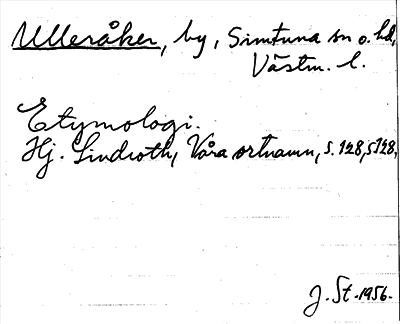 Ulleråker, by, Simtuna sn o. hd,
Västm. l.
Etymologi.
Hj. Lindroth, Våra ortnamn, s. 128, s 198,
J. St. 1956.